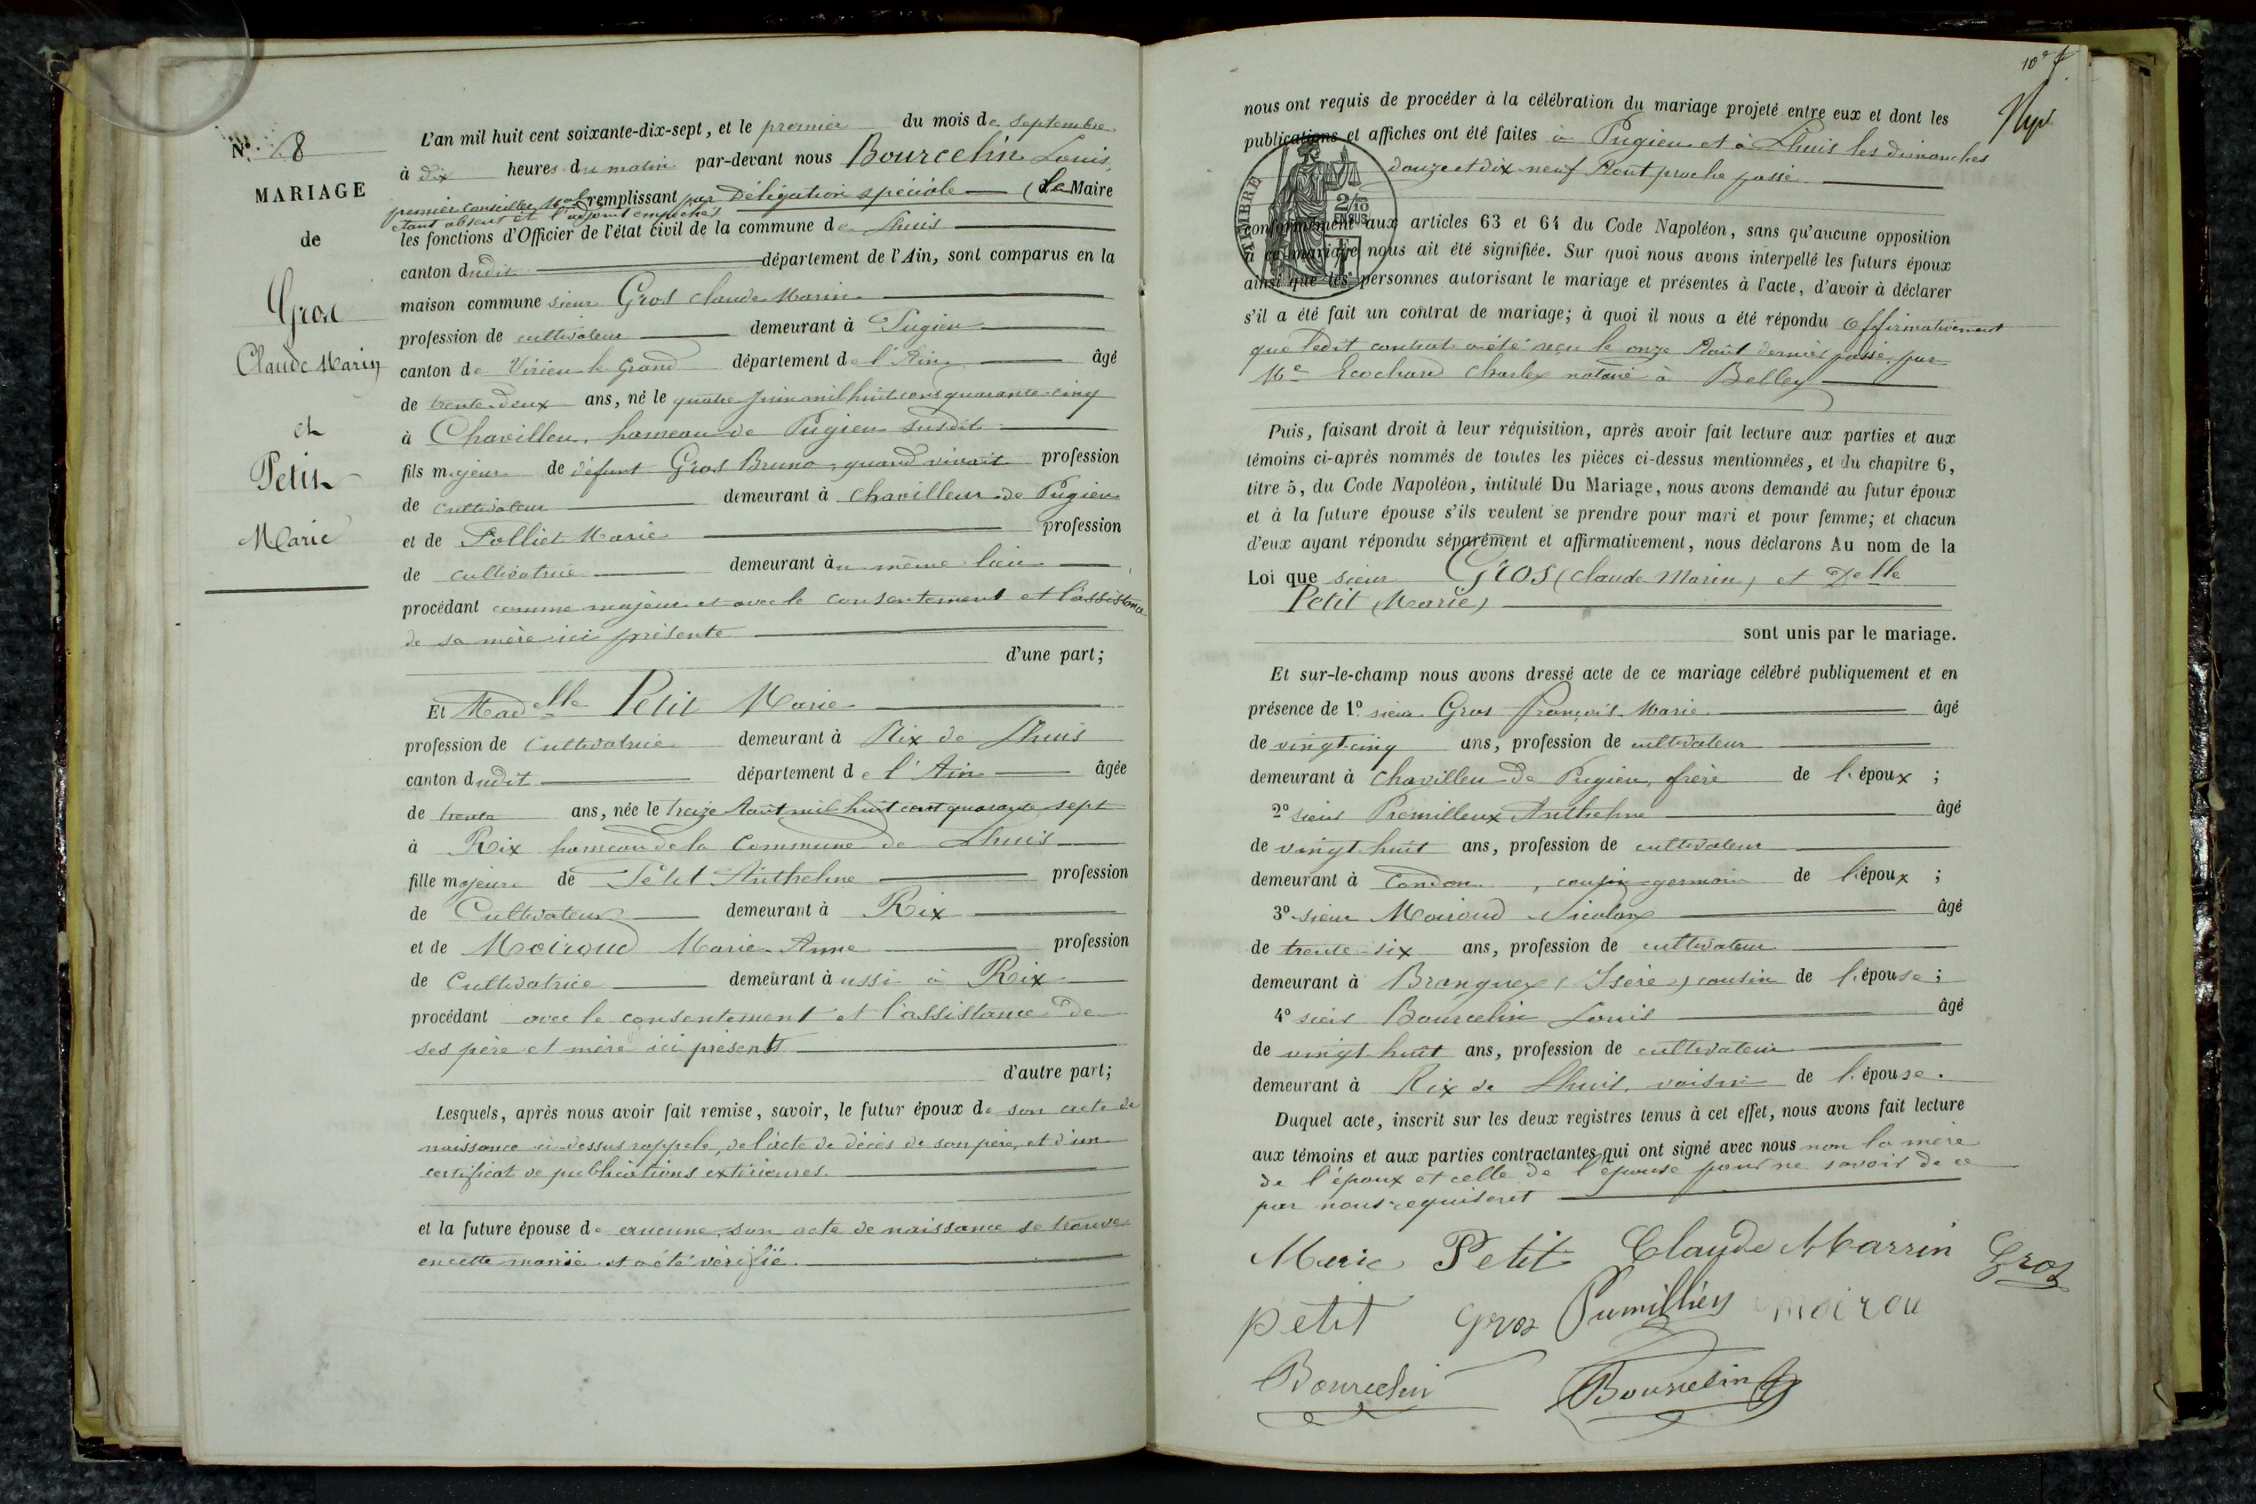 N° 8
MARIAGE
de
Gros
Claude Marin
et
Petit
Marie
L'an mil huit cent soixante-dix-sept, et le premier du mois de septembre
à dix heures du matin par-devant nous Bourcelin Louis,
premier conseiller mpal remplissant par Délégation spéciale (le Maire
étant absent et l'adjoint empêché)
les fonctions d'Officier de l'état civil de la commune de Lhuis
canton dudit département de l'Ain, sont comparus en la
maison commune sieur Gros Claude Marin
profession de cultivateur demeurant à Pugieu
canton de Virieu le Grand département de l'Ain âgé
de trente-deux ans, né le quatre juin mil huit cent quarante-cinq
à Chavilleu, hameau de Pugieu susdit
fils majeur de défunt Gros Bruno, quand vivait profession
de cultivateur demeurant à Chavilleu de Pugieu
et de Polliet Marie profession
de cultivatrice demeurant au même lieu
procédant comme majeur et avec le consentement et l'assistance
de sa mère ici présente
d'une part;
Et Madelle Petit Marie
profession de Cultivatrice demeurant à Rix de Lhuis
canton dudit département de l'Ain âgée
de trente ans, née le treize Août mil huit cent quarante sept
à Rix hameau de la Commune de Lhuis
fille majeure de Petit Anthelme profession
de Cultivateur demeurant à Rix
et de Moiroud Marie-Anne profession
de Cultivatrice demeurant aussi à Rix
procédant avec le consentement et l'assistance de
ses père et mère ici présents
d'autre part;
Lesquels, après nous avoir fait remise, savoir, le futur époux de son acte de
naissance ci-dessus rappelé, de l'acte de décès de son père, et d'un
certificat de publications extérieures.
et la future épouse de aucune, son acte de naissance se trouve
en cette mairie et a été vérifié.
nous ont requis de procéder à la célébration du mariage projeté entre eux et dont les
publications et affiches ont été faites à Pugieu et à Lhuis les dimanches
douze et dix-neuf Août proche passé
TIMBRE
2/10
EN SUS
conformément aux articles 63 et 64 du Code Napoléon, sans qu'aucune opposition
à ce mariage nous ait été signifiée. Sur quoi nous avons interpellé les futurs époux
ainsi que les personnes autorisant le mariage et présentes à l'acte, d'avoir à déclarer
s'il a été fait un contrat de mariage; à quoi il nous a été répondu affirmativement
que ledit contrat a été reçu le onze Août dernier passé par
Me Ecochard Charles notaire à Belley
Puis, faisant droit à leur réquisition, après avoir fait lecture aux parties et aux
témoins ci-après nommés de toutes les pièces ci-dessus mentionnées, et du chapitre 6,
titre 5, du Code Napoléon, intitulé Du Mariage, nous avons demandé au futur époux
et à la future épouse s'ils veulent se prendre pour mari et pour femme; et chacun
d'eux ayant répondu séparément et affirmativement, nous déclarons Au nom de la
Loi que sieur Gros (Claude Marin) et Delle
Petit (Marie)
sont unis par le mariage.
Et sur-le-champ nous avons dressé acte de ce mariage célébré publiquement et en
présence de 1° sieur Gros François Marie âgé
de vingt-cinq ans, profession de cultivateur
demeurant à Chavilleu de Pugieu, frère de l'époux;
2° sieur Premilleux Anthelme âgé
de vingt huit ans, profession de cultivateur
demeurant à Condon, cousin germain de l'époux;
3° sieur Moiroud Nicolas âgé
de trente-six ans, profession de cultivateur
demeurant à Brangues (Isère) cousin de l'épouse;
4° sieur Bourcelin Louis âgé
de vingt huit ans, profession de cultivateur
demeurant à Rix de Lhuis, voisin de l'épouse.
Duquel acte, inscrit sur les deux registres tenus à cet effet, nous avons fait lecture
aux témoins et aux parties contractantes qui ont signé avec nous non la mère
de l'époux et celle de l'épouse pour ne savoir de ce
par nous requises
Marie Petit Claude Marrin Gros
petit Gros moirou
Bourcelin Bourcelin